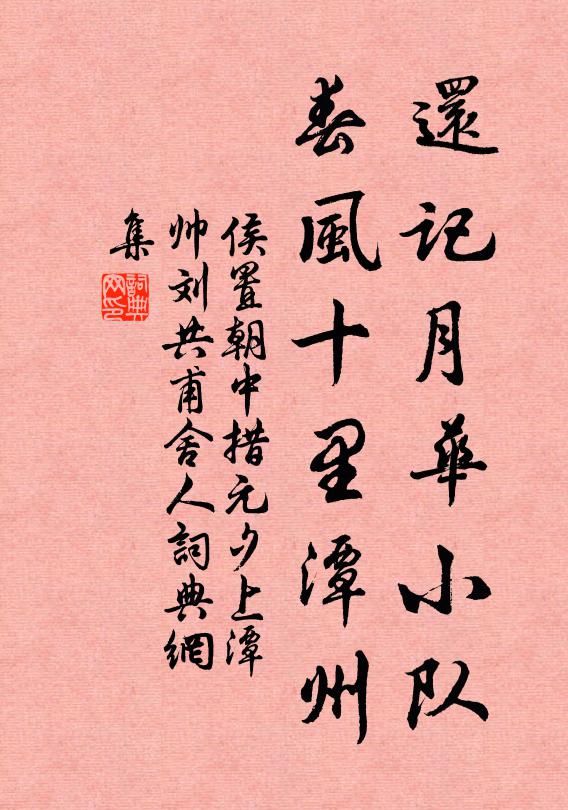 還記月華小队
春風十里潭州
侯置朝中措元夕上潭
帅刘共甫舍人詞典網
集
詞典
网印